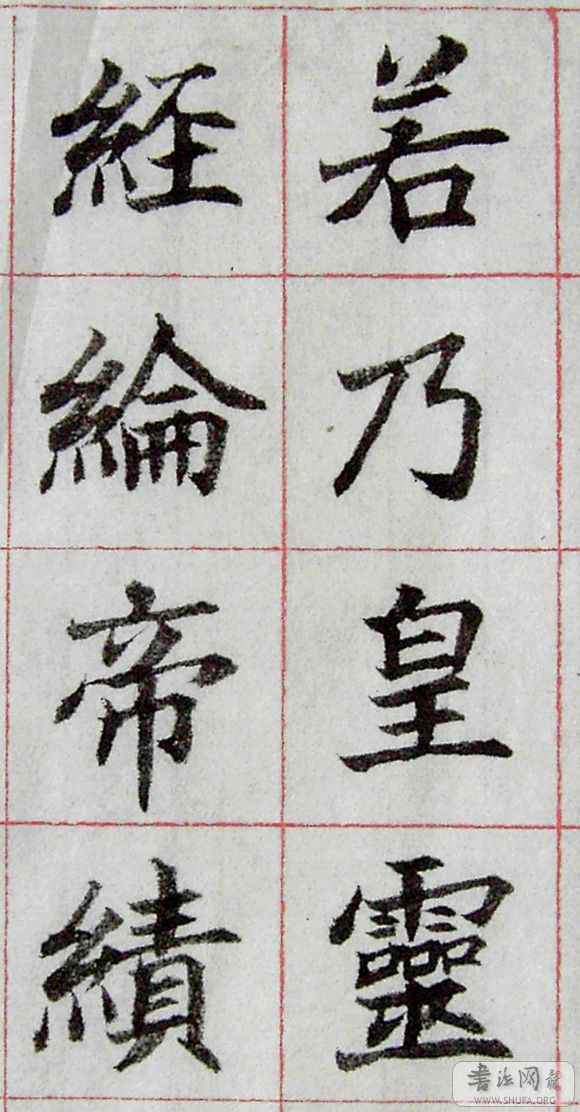 若乃皇靈
經綸帝績
書法网報
WWW.SHUFA.ORG